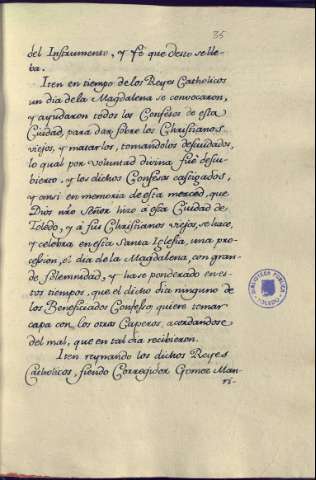 35
del Instrumento, y fé que desto se lle-
ba.
Iten en tiempo de los Reyes Catholicos
un dia de la Magdalena se convocaron,
y ayudaron todos los Confesos de esta
Ciudad, para dar sobre los Christianos
viejos, y matarlos, tomandolos descuidados,
lo qual por voluntad divina fue descu-
bierto, y los dichos Confesos castigados,
y ansi en memoria de esta merced, que
Dios nro Señor hizo á esta Ciudad de
Toledo, y á sus Christianos viejos, se hace,
y celebra en esta Santa Iglesia, una pro-
cession, el dia de la Magdalena, con gran-
de solemnidad, y hase ponderado en es-
tos tiempos, que el dicho dia ninguno de
los Beneficiados Confesso, quiere tomar
capa con los otros Caperos, acordandose
del mal, que en tal dia recibieron.
Iten reynando los dichos Reyes
Catholicos, siendo Corregidor Gomez Man-
ri-
BIBLIOTECA PUBLICA
TOLEDO